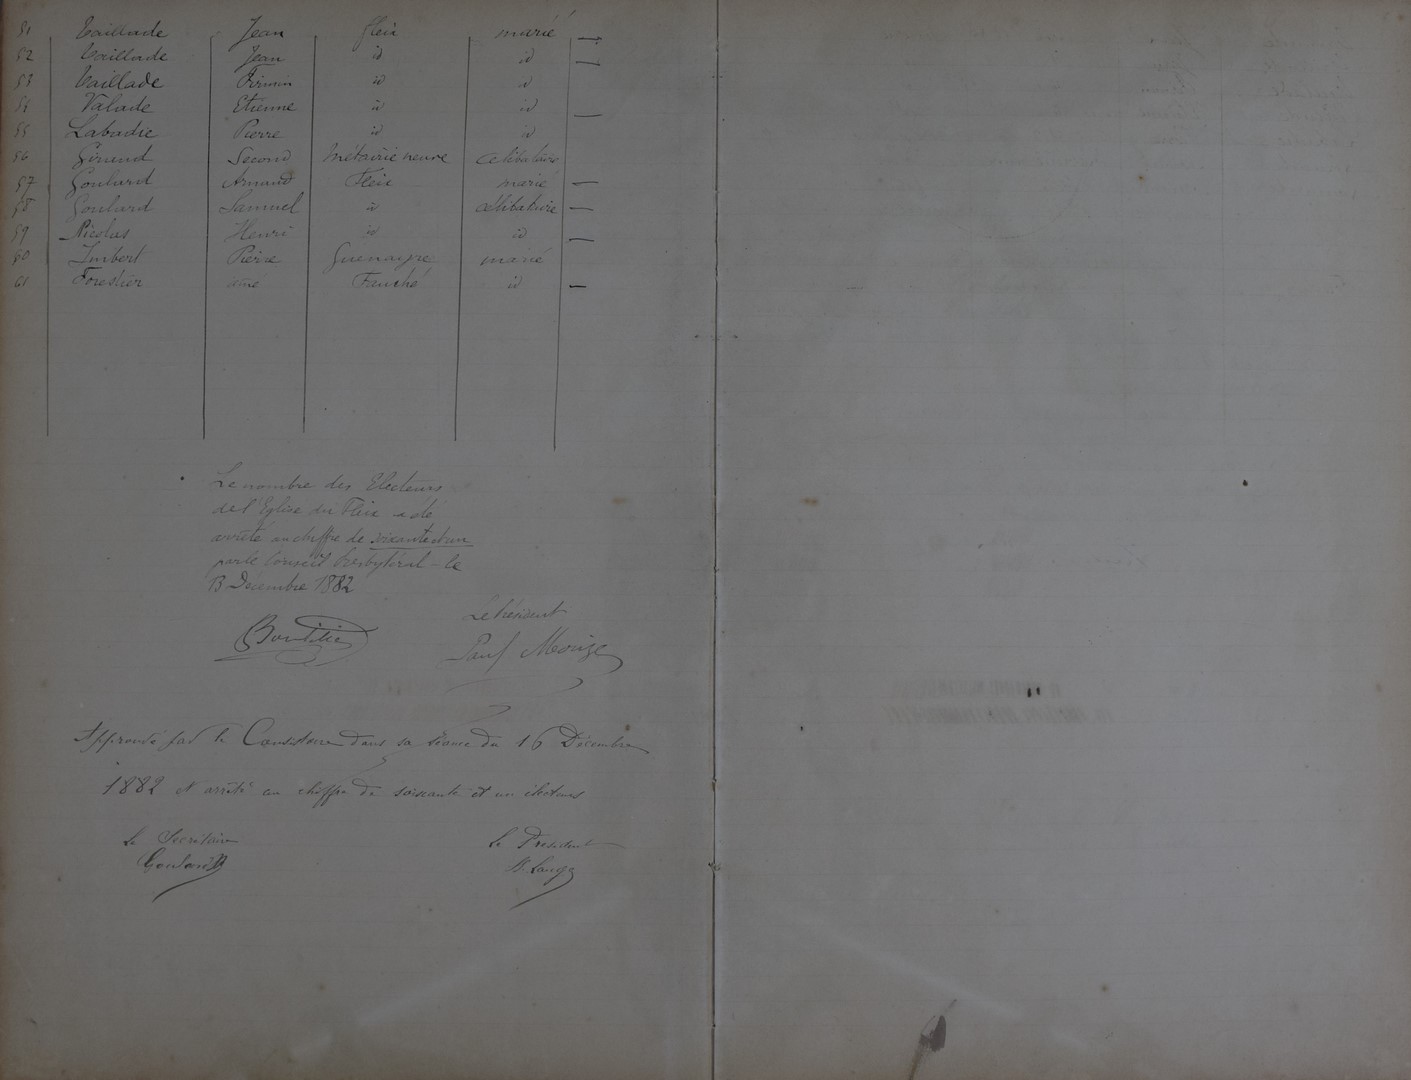 51 Taillade Jean fleix marié
52 Taillade Jean id id
53 Taillade Firmin id id
54 Valade Etienne id id
55 Labadie Pierre id id
56 Giraud Second Métairie neuve célibataire
57 Goulard Armand Fleix marié
58 Goulard Samuel id célibataire
59 Nicolas Henri id id
60 Imbert Pierre Guenayre marié
61 Forestier aîné Fauché id
Le nombre des Electeurs
de l'Eglise du Fleix a été
arrêté au chiffre de soixante et un
par le Conseil Presbytéral - le
13 Décembre 1882
Le Président
Paul Mouize
Approuvé par le Consistoire dans sa séance du 16 Décembre
1882 et arrêté au chiffre de soixante et un électeurs
Le Secrétaire Le President
Goulard